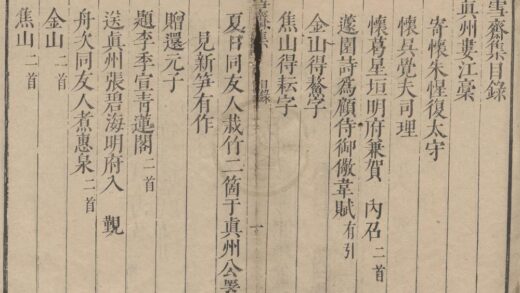 雪齋集目錄
真州婁江稾
寄懷朱惺復太守
懷吳覺夫司理
懷葛星垣明府兼賀 內召二首
蘧園詩爲顧侍御儆韋賦有引
金山得鰲字
焦山得耘字
齋集 目錄 一
夏日同友人栽竹二箇于真州公署
見新笋有作
贈還元子
題李季宣青蓮閣二首
送真州張碧海明府入 覲
舟次同友人煮惠泉二首
金山二首
焦山二首